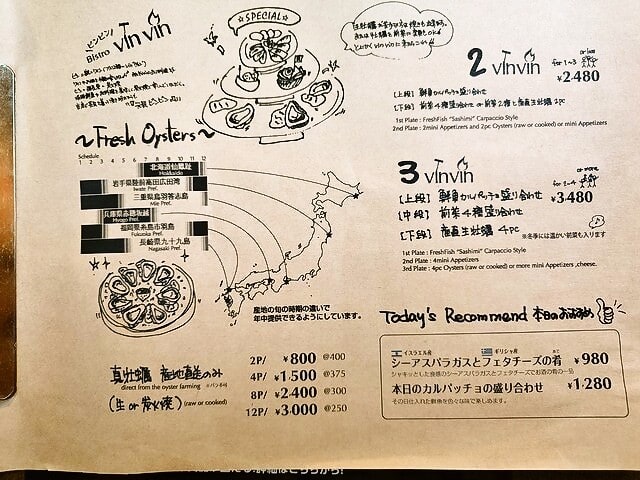 SPECIAL
ビンビン!
Bistro vin vin
~Fresh Oysters~
Schedule
1 2 3 4 5 6 7 8 9 10 11 12
北海道仙鳳趾
Hokkaido
岩手県陸前高田広田湾
Iwate Pref.
三重県鳥羽答志島
Mie Pref.
兵庫県赤穂坂越
Hyogo Pref.
福岡県糸島市羽島
Fukuoka Pref.
長崎県九十九島
Nagasaki Pref.
産地の旬の時期の違いで
年中提供できるようにしています。
真牡蠣 産地直送のみ
direct from the oyster farming
(生 or 炭火焼) (raw or cooked)
2P/ ¥800 @400
4P/ ¥1,500 @375
8P/ ¥2,400 @300
12P/ ¥3,000 @250
2 vin vin for 1~3 or less
¥2,480
[上段] 鮮魚カルパッチョ盛り合わせ
[下段] 前菜4種盛り合わせ or 前菜2種と産直生牡蠣2PC
1st Plate : FreshFish "Sashimi" Carpaccio Style
2nd Plate : 2mini Appetizers and 2pc Oysters (raw or cooked) or mini Appetizers
3 vin vin for 2~4 or more
¥3,480
[上段] 鮮魚カルパッチョ盛り合わせ
[中段] 前菜4種盛り合わせ
[下段] 産直生牡蠣 4PC
※冬季には温かい前菜も入ります
1st Plate : FreshFish "Sashimi" Carpaccio Style
2nd Plate : 4mini Appetizers
3rd Plate : 4pc Oysters (raw or cooked) or more mini Appetizers ,cheese.
Today's Recommend 本日のおすすめ
イスラエル産 ギリシャ産
シーアスパラガスとフェタチーズの肴 ¥980
シャキッとした食感のシーアスパラガスとフェタチーズでお酒の肴の一品
本日のカルパッチョの盛り合わせ ¥1,280
その日仕入れた鮮魚を色々な味で楽しめます。